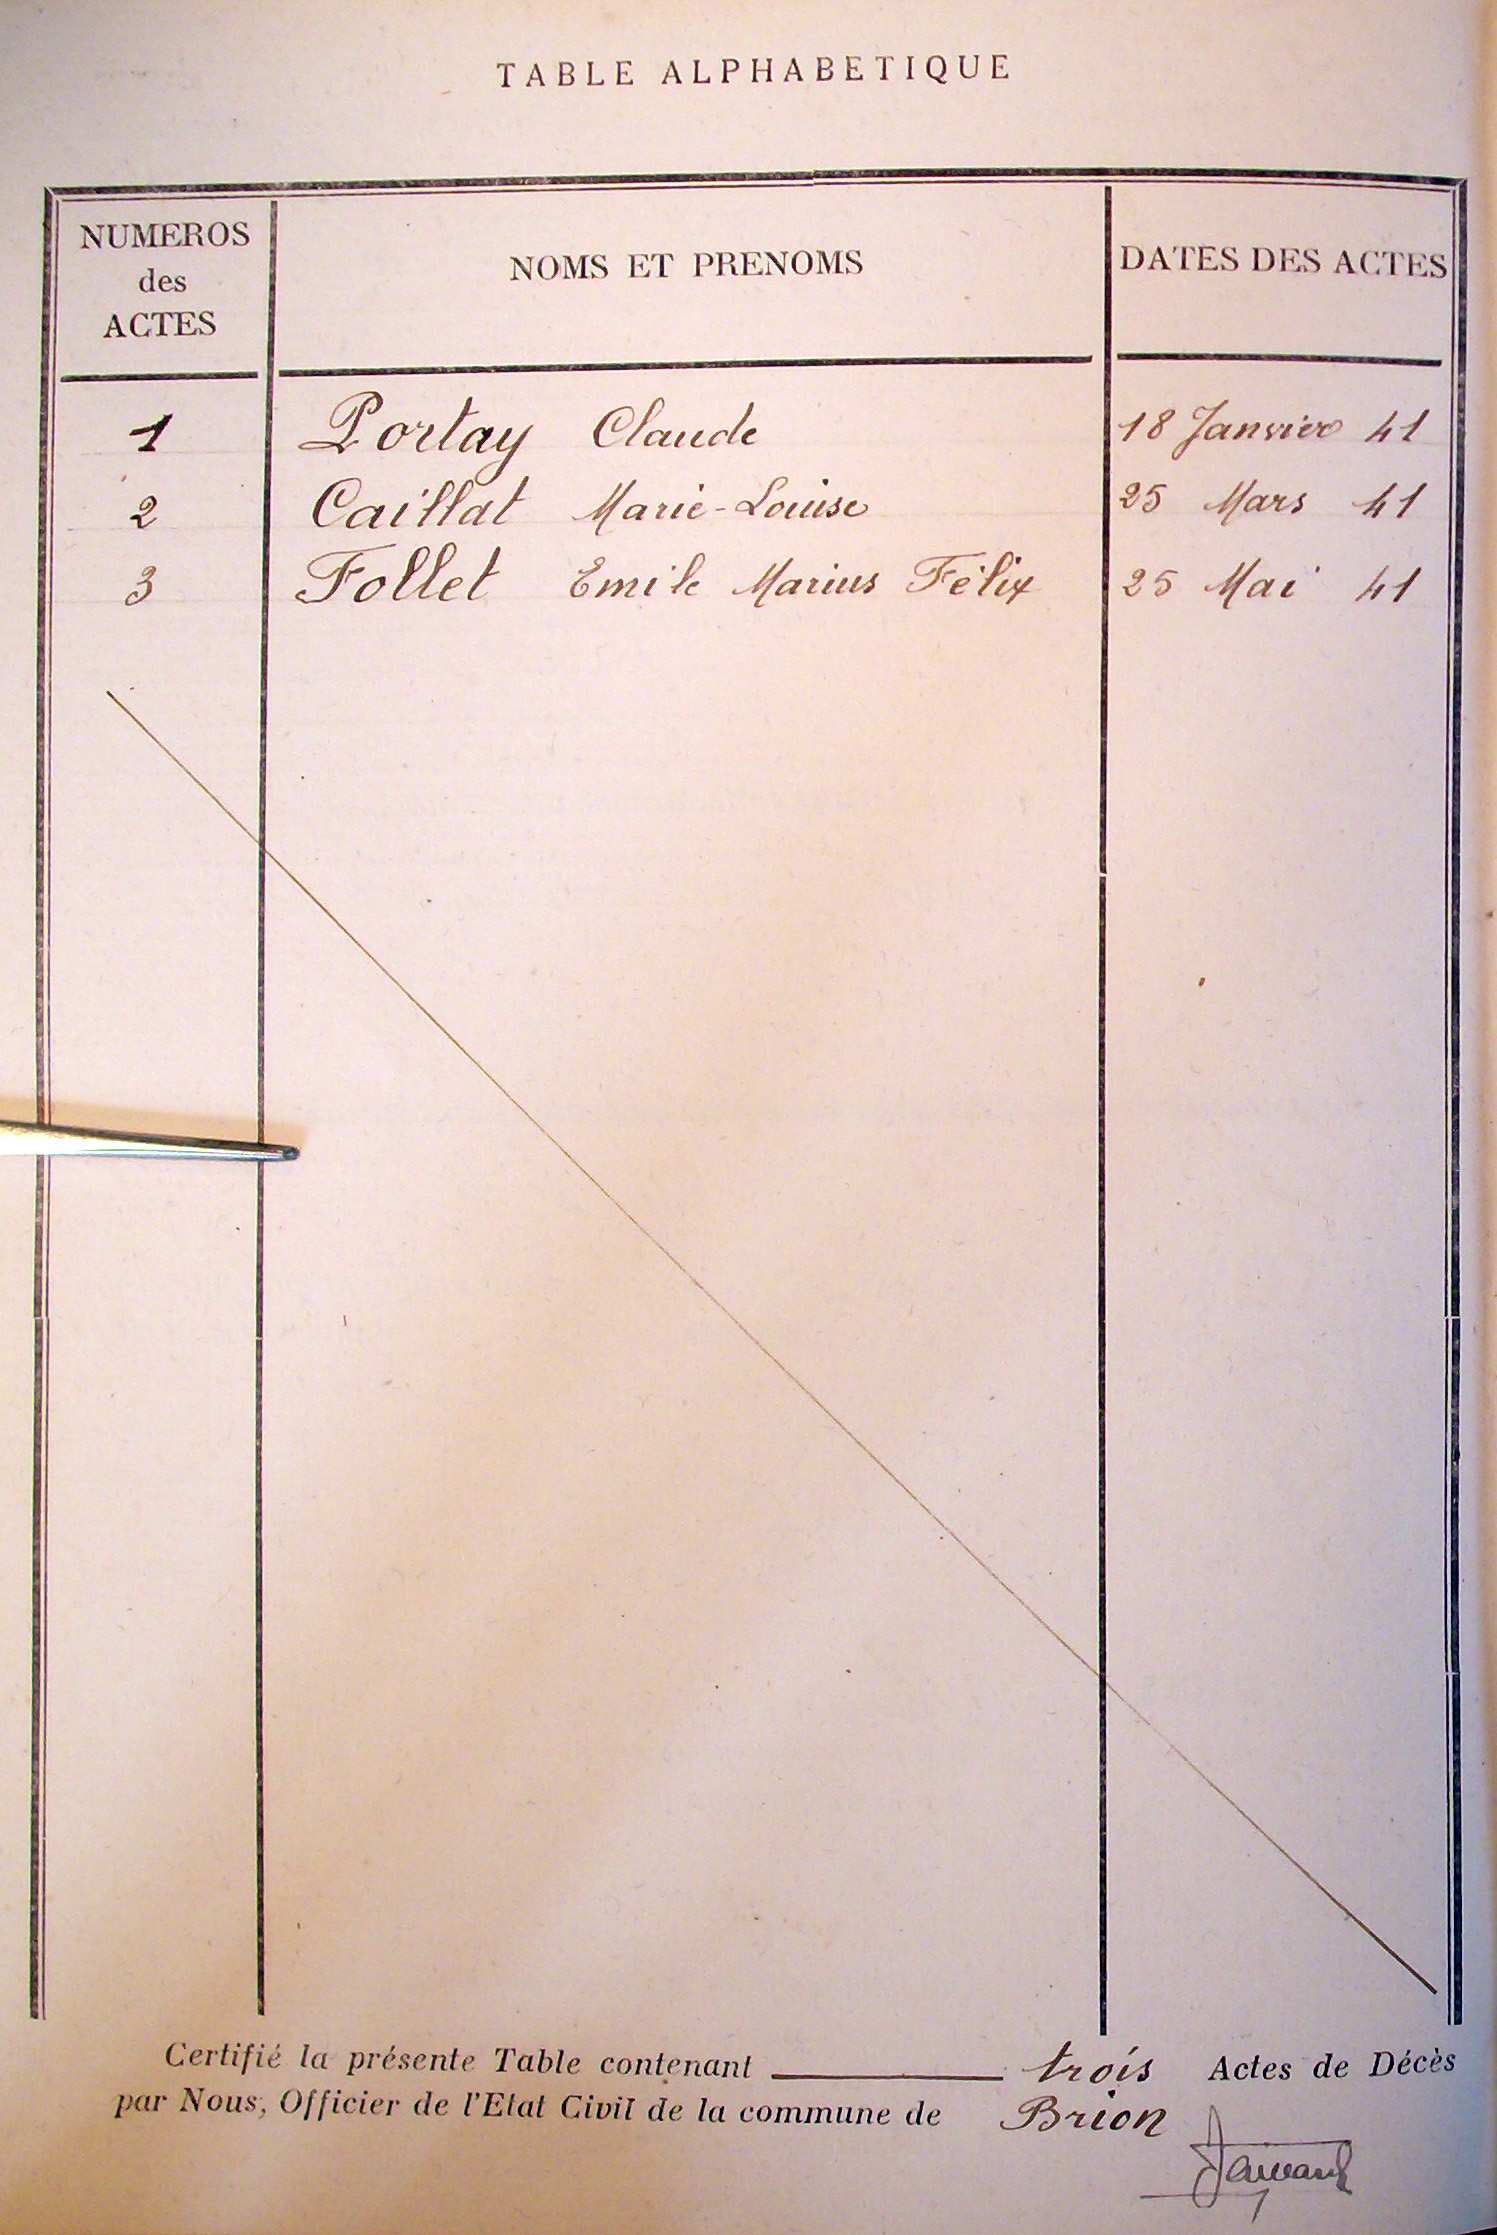 TABLE ALPHABETIQUE
NUMEROS
des
ACTES
NOMS ET PRENOMS
DATES DES ACTES
1 Portay Claude 18 Janvier 41
2 Caillat Marie-Louise 25 Mars 41
3 Follet Emile Marius Félix 25 Mai 41
Certifié la présente Table contenant trois Actes de Décès
par Nous, Officier de l'Etat Civil de la commune de Brion